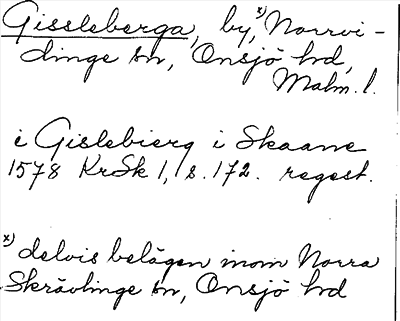 Gissleberga, by, x) Norrvi-
dinge sn, Onsjö hd,
Malm. l.
i Gislebierg i Skaane
1578 KrSk 1, s. 172. regest.
x) delvis belägen inom Norra
Skrävlinge sn, Onsjö hd